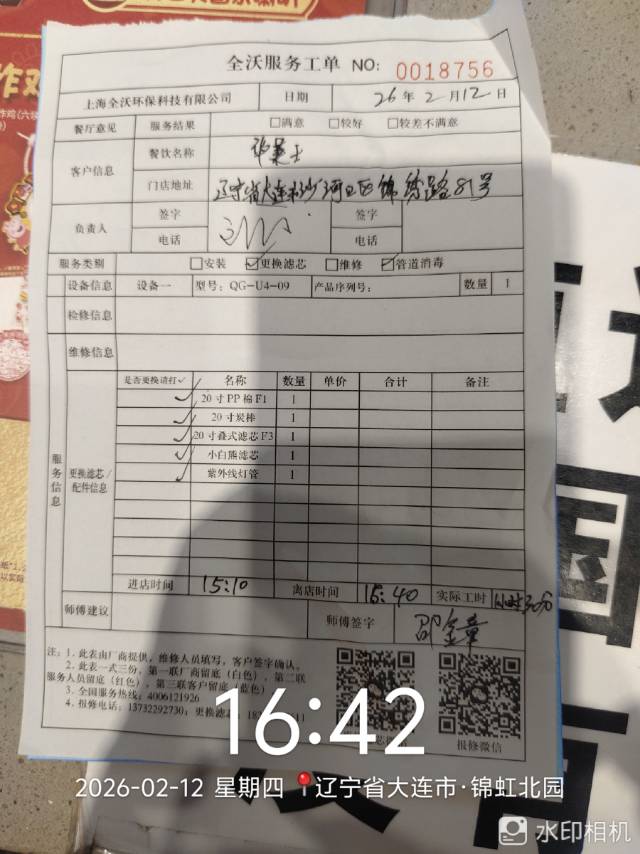 全沃服务工单 NO: 0018756
上海全沃环保科技有限公司 日期 26年2月12日
餐厅意见 服务结果 □满意 □较好 □较差不满意
客户信息 餐饮名称 华莱士
门店地址 辽宁省大连市沙河口区锦绣路81号
负责人 签字 签字
电话 电话
服务类别 □安装 ☑更换滤芯 □维修 ☑管道消毒
设备信息 设备一 型号: QG-U4-09 产品序列号: 数量 1
检修信息
维修信息
服务信息 更换滤芯/配件信息
是否更换请打✓ 名称 数量 单价 合计 备注
✓ 20寸PP棉F1 1
✓ 20寸炭棒 1
✓ 20寸叠式滤芯F3 1
✓ 小白熊滤芯 1
✓ 紫外线灯管 1
进店时间 15:10 离店时间 16:40 实际工时 1小时30分
师傅建议 师傅签字 邵金章
注: 1. 此表由厂商提供, 维修人员填写, 客户签字确认。
2. 此表一式三份, 第一联厂商留底 (白色), 第二联
服务人员留底 (红色), 第三联客户留底 (蓝色)
3. 全国服务热线: 4006121926
4. 报修电话: 13732292730; 更换滤
报修微信
16:42
2026-02-12 星期四 辽宁省大连市·锦虹北园
水印相机